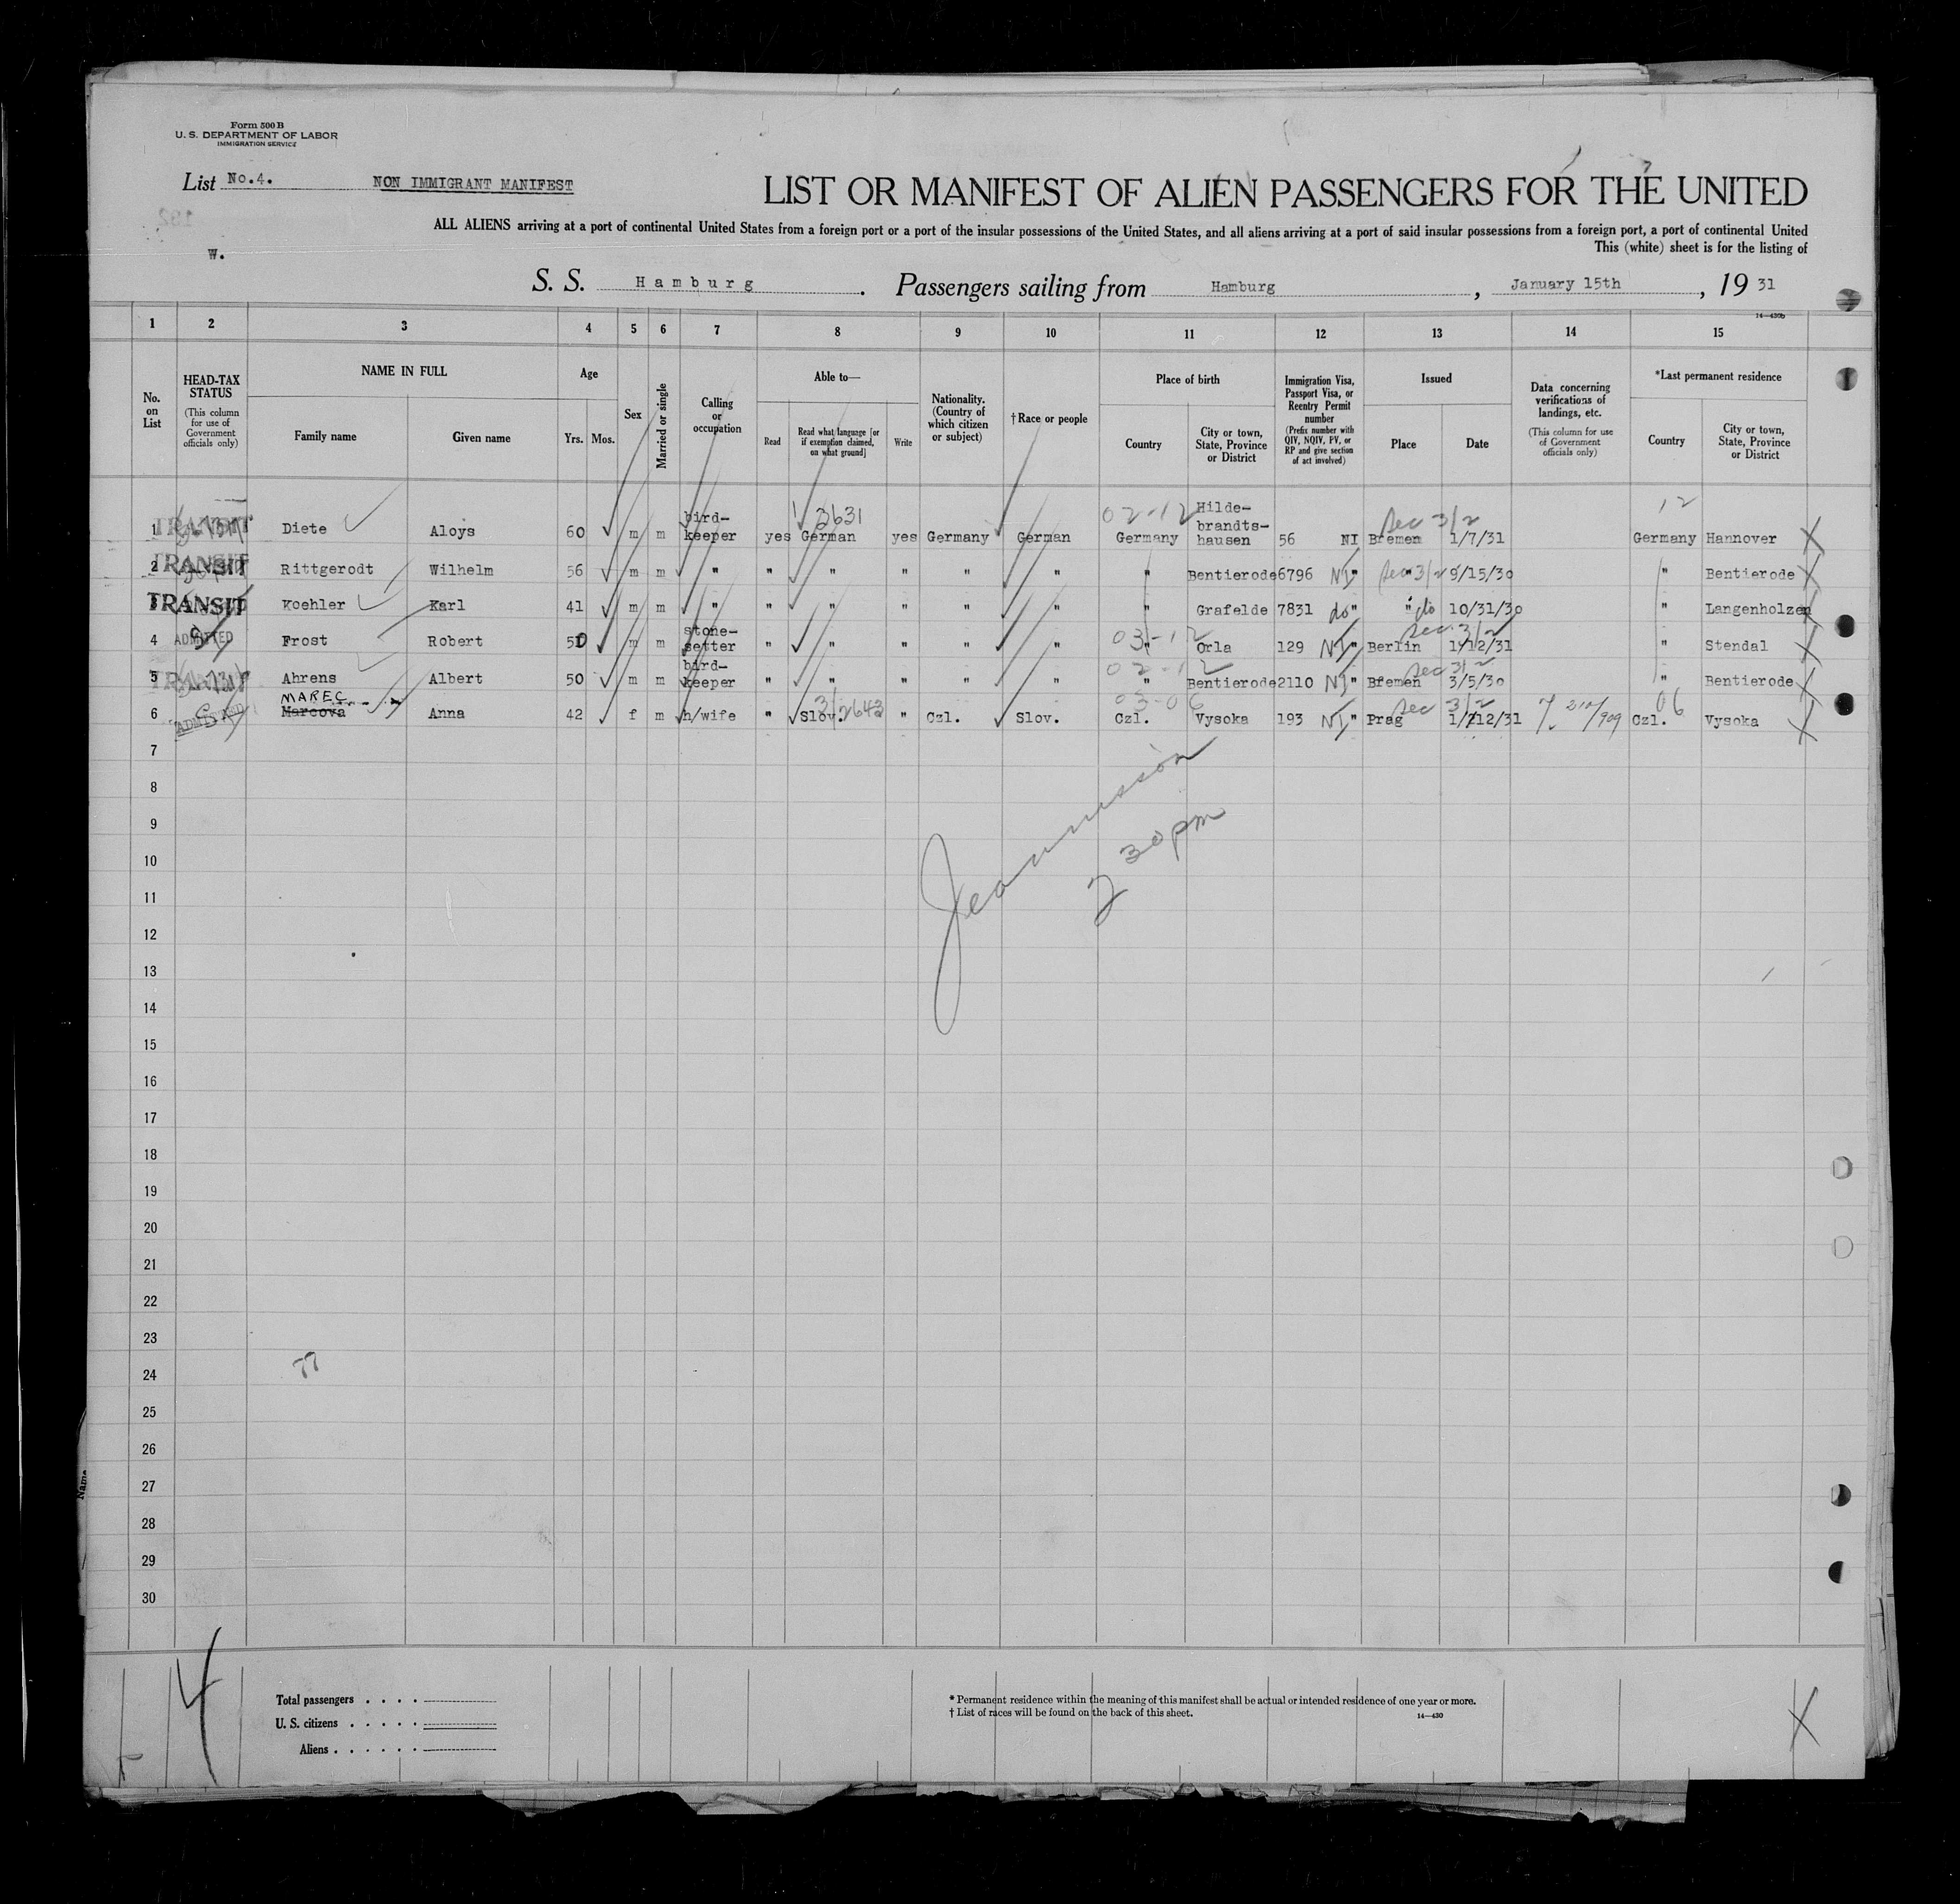 Form 500 B
U. S. DEPARTMENT OF LABOR
IMMIGRATION SERVICE
List No.4. NON IMMIGRANT MANIFEST
LIST OR MANIFEST OF ALIEN PASSENGERS FOR THE UNITED
ALL ALIENS arriving at a port of continental United States from a foreign port or a port of the insular possessions of the United States, and all aliens arriving at a port of said insular possessions from a foreign port, a port of continental United
This (white) sheet is for the listing of
W.
S. S. Hamburg. Passengers sailing from Hamburg, January 15th, 19 31
14—430b
1 2 3 4 5 6 7 8 9 10 11 12 13 14 15
No. on List
HEAD-TAX STATUS
(This column for use of Government officials only)
NAME IN FULL
Family name
Given name
Age
Yrs. Mos.
Sex
Married or single
Calling or occupation
Able to—
Read
Read what language [or if exemption claimed, on what ground]
Write
Nationality. (Country of which citizen or subject)
†Race or people
Place of birth
Country
City or town, State, Province or District
Immigration Visa, Passport Visa, or Reentry Permit number
(Prefix number with QIV, NQIV, PV, or RP and give section of act involved)
Issued
Place
Date
Data concerning verifications of landings, etc.
(This column for use of Government officials only)
*Last permanent residence
Country
City or town, State, Province or District
1 TRANSIT Diete Aloys 60 m m bird-keeper yes German 3631 yes Germany German 02-12 Germany Hilde-brandts-hausen 56 NI Bremen Sec 3/2 1/7/31 12 Germany Hannover
2 TRANSIT Rittgerodt Wilhelm 56 m m " " " " " " " Bentierode 6796 NI " Sec 3/2 " 9/15/30 " Bentierode
3 TRANSIT Koehler Karl 41 m m " " " " " " " Grafelde 7831 do " " do 10/31/30 " Langenholzen
4 ADMITTED Frost Robert 50 m m stone-setter " " " " " 03-12 " Orla 129 NI " Berlin Sec 3/2 1/12/31 " Stendal
5 TRANSIT Ahrens Albert 50 m m bird-keeper " " " " " 02-12 " Bentierode 2110 NI " Bremen Sec 3/2 3/5/30 " Bentierode
MAREC
6 ADMITTED Marcova Anna 42 f m h/wife " Slov. " Czl. Slov. 03-06 Czl. Vysoka 193 NI " Prag Sec 3/2 1/12/31 06 Czl. Vysoka
7
8
9
2 30 pm
10
11
12
13
14
15
16
17
18
19
20
21
22
23
77
24
25
26
27
28
29
30
Name
Total passengers . . . .
U. S. citizens . . . . .
Aliens . . . . . .
* Permanent residence within the meaning of this manifest shall be actual or intended residence of one year or more.
† List of races will be found on the back of this sheet.
14—430